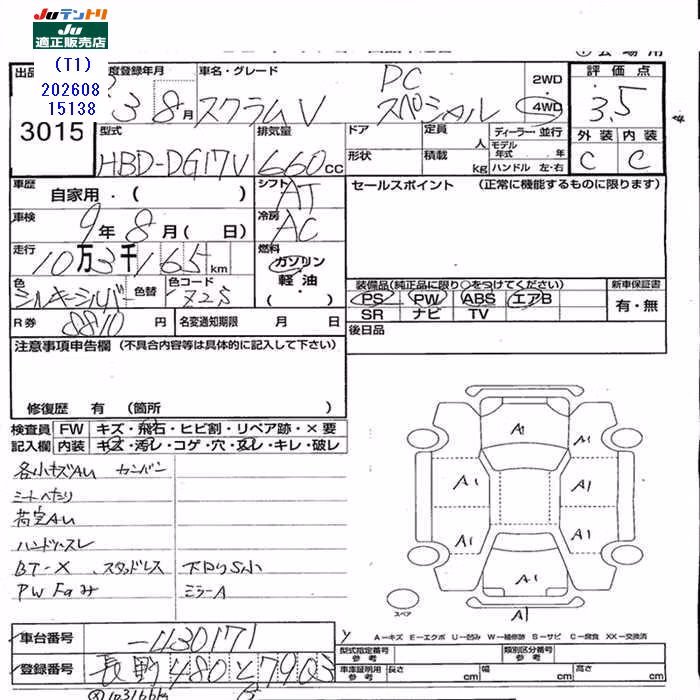 JUテントリ
JU
適正販売店
(T1)
202608
15138
出品
3015
度登録年月
3 8月
車名・グレード
スクラムV
PC
スペシャル
2WD
4WD
評価点
3.5
外装 内装
C C
型式
HBD-DG17V
排気量
660cc
ドア
定員
人
形状
積載
kg
ディーラー・並行
モデル年式 . 年
ハンドル 左・右
車歴
自家用・( )
シフト
AT
セールスポイント (正常に機能するものに限ります)
車検
9年8月( 日)
冷房
AC
走行
10万3千165km
燃料
ガソリン
軽油
・( )
色
シルキーシルバー
色替
色コード
Z2S
装備品(純正品に限り○をつけてください)
PS PW ABS エアB
SR ナビ TV
新車保証書
有・無
R券
8810円
名変通知期限 月 日
後日品
注意事項申告欄 (不具合内容等は具体的に記入して下さい)
修復歴 有 (箇所 )
検査員 FW キズ・飛石・ヒビ割・リペア跡・×要
記入欄 内装 キズ・汚レ・コゲ・穴・変レ・キレ・破レ
各小キズAU カンバン
シートへたり
荷室AU
ハンドルスレ
BT-X スタッドレス 下回りS小
PW Faみ ミラーA
A1
A1 A1
A1 A1
A1 A1
A1
A1
スペア
車台番号
-430171
登録番号
長野480と7903
A-キズ E-エクボ U-凹み W-補修跡 S-サビ C-腐食 XX-交換済
型式指定番号
参考
類別区分番号
参考
車庫証明用
参考
長さ cm 幅 cm 高さ cm